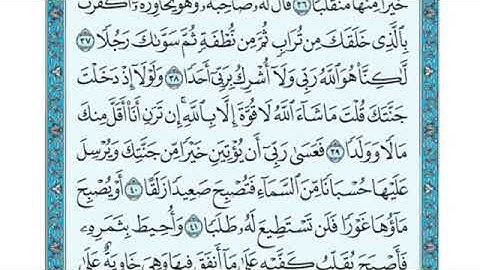 خَيْرًا مِّنْهَا مُنقَلَبًا ٣٦ قَالَ لَهُۥ صَاحِبُهُۥ وَهُوَ يُحَاوِرُهُۥٓ أَكَفَرْتَ
بِٱلَّذِى خَلَقَكَ مِن تُرَابٍ ثُمَّ مِن نُّطْفَةٍ ثُمَّ سَوَّىٰكَ رَجُلًا ٣٧
لَّٰكِنَّا۠ هُوَ ٱللَّهُ رَبِّى وَلَآ أُشْرِكُ بِرَبِّىٓ أَحَدًا ٣٨ وَلَوْلَآ إِذْ دَخَلْتَ
جَنَّتَكَ قُلْتَ مَا شَآءَ ٱللَّهُ لَا قُوَّةَ إِلَّا بِٱللَّهِ ۚ إِن تَرَنِ أَنَا۠ أَقَلَّ مِنكَ
مَالًا وَوَلَدًا ٣٩ فَعَسَىٰ رَبِّىٓ أَن يُؤْتِيَنِ خَيْرًا مِّن جَنَّتِكَ وَيُرْسِلَ
عَلَيْهَا حُسْبَانًا مِّنَ ٱلسَّمَآءِ فَتُصْبِحَ صَعِيدًا زَلَقًا ٤٠ أَوْ يُصْبِحَ
مَآؤُهَا غَوْرًا فَلَن تَسْتَطِيعَ لَهُۥ طَلَبًا ٤١ وَأُحِيطَ بِثَمَرِهِۦ
فَأَصْبَحَ يُقَلِّبُ كَفَّيْهِ عَلَىٰ مَآ أَنفَقَ فِيهَا وَهِىَ خَاوِيَةٌ عَلَىٰ